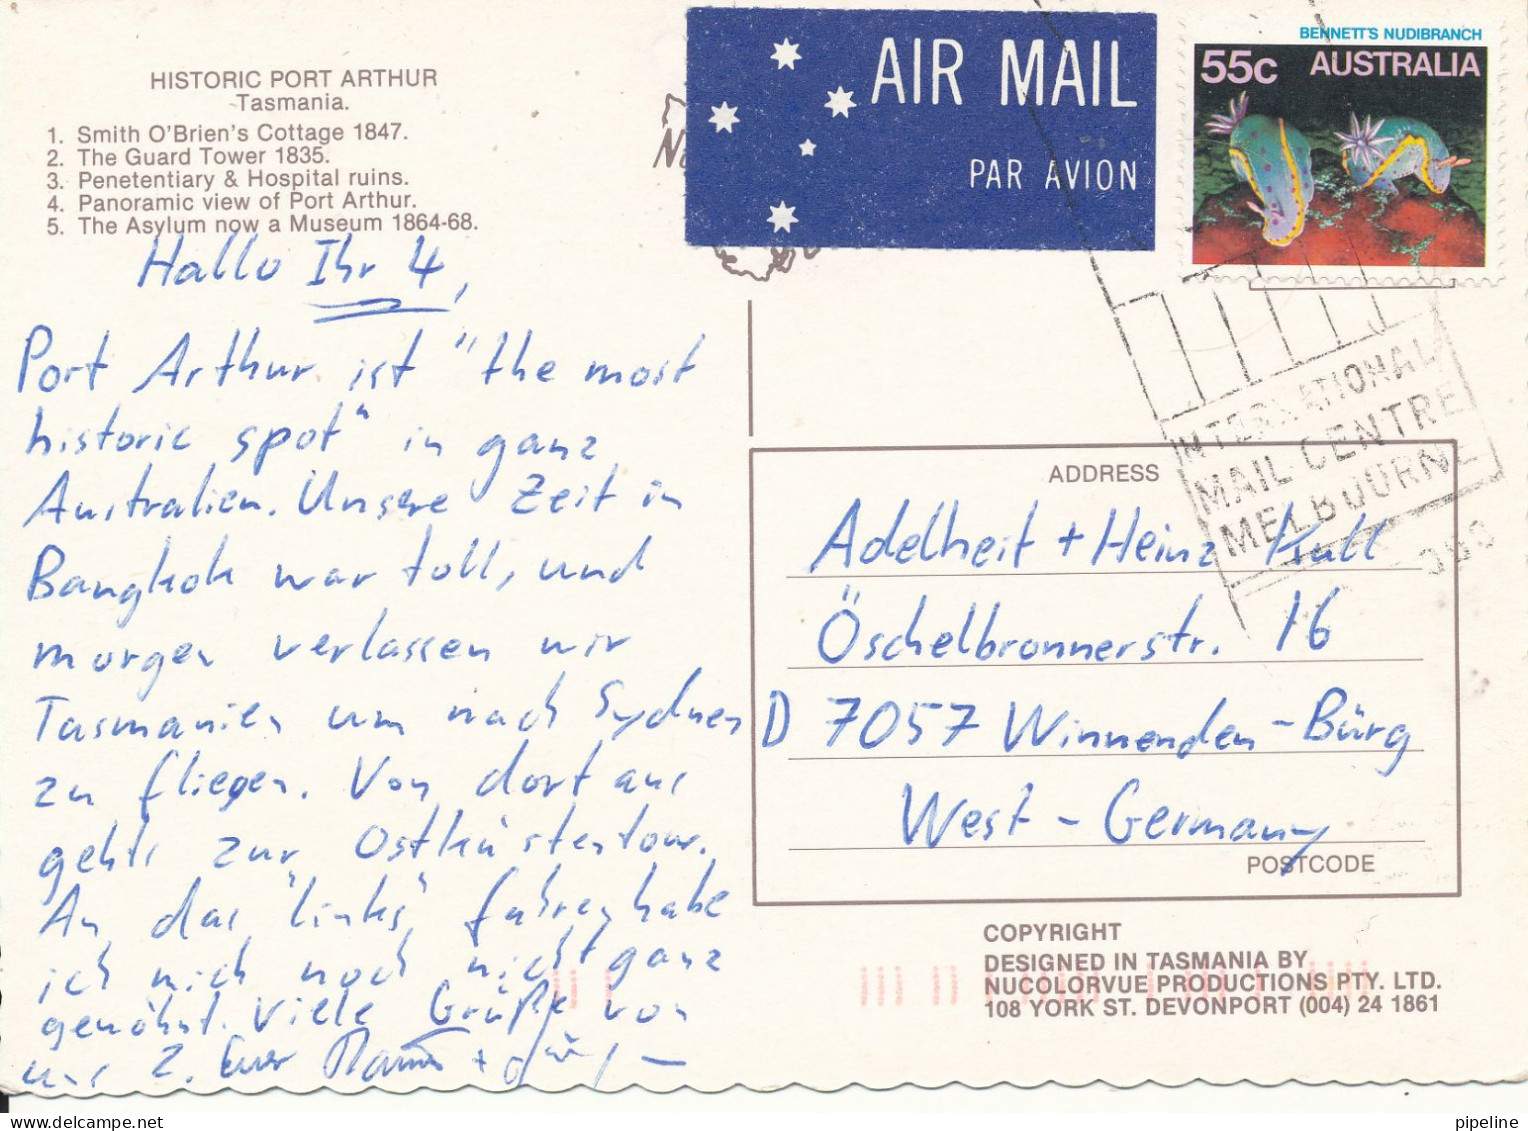 HISTORIC PORT ARTHUR
Tasmania.
1. Smith O'Brien's Cottage 1847.
2. The Guard Tower 1835.
3. Penetentiary & Hospital ruins.
4. Panoramic view of Port Arthur.
5. The Asylum now a Museum 1864-68.
Hallo Ihr 4,
Port Arthur ist "the most
historic spot" in ganz
Australien. Unsere Zeit in
Bangkok war toll, und
morgen verlassen wir
Tasmanien um nach Sydney
zu fliegen. Von dort aus
gehts zur Ostküstentour.
An das "links" fahren habe
ich mich noch nicht ganz
gewöhnt. Viele Grüße von
uns 2. Euer
AIR MAIL
PAR AVION
BENNETT'S NUDIBRANCH
55c AUSTRALIA
INTERNATIONAL
MAIL CENTRE
MELBOURNE
ADDRESS
Adelheit + Heinz Kull
Öschelbronnerstr. 16
D 7057 Winnenden-Bürg
West-Germany
POSTCODE
COPYRIGHT
DESIGNED IN TASMANIA BY
NUCOLORVUE PRODUCTIONS PTY. LTD.
108 YORK ST. DEVONPORT (004) 24 1861
pipeline